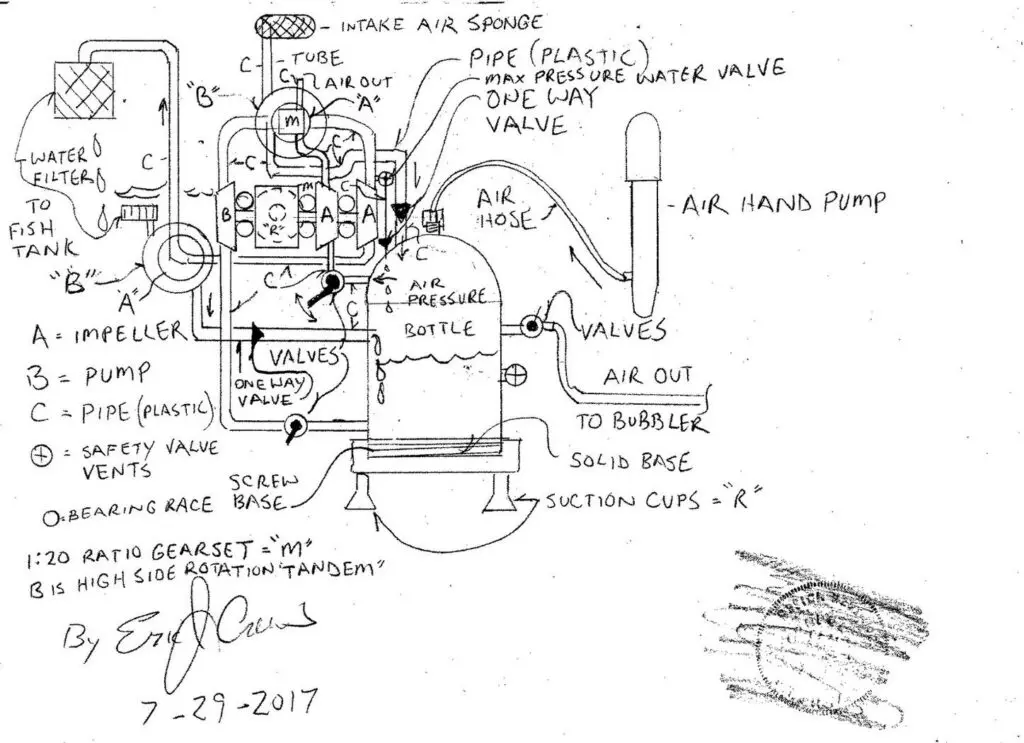 INTAKE AIR SPONGE
TUBE
C
C
AIR OUT
"B"
"A"
M
PIPE (PLASTIC)
MAX PRESSURE WATER VALVE
ONE WAY
VALVE
WATER
FILTER
TO
FISH
TANK
C
C
C
C
M
B
"R"
A
A
AIR
HOSE
AIR HAND PUMP
"B"
"A"
C
C
C
AIR
PRESSURE
BOTTLE
VALVES
A = IMPELLER
B = PUMP
C = PIPE (PLASTIC)
⊕ = SAFETY VALVE
VENTS
ONE WAY
VALVE
VALVES
AIR OUT
TO BUBBLER
SCREW
BASE
SOLID BASE
SUCTION CUPS = "R"
O = BEARING RACE
1:20 RATIO GEARSET = "M"
B IS HIGH SIDE ROTATION "TANDEM"
By Eric J
7-29-2017